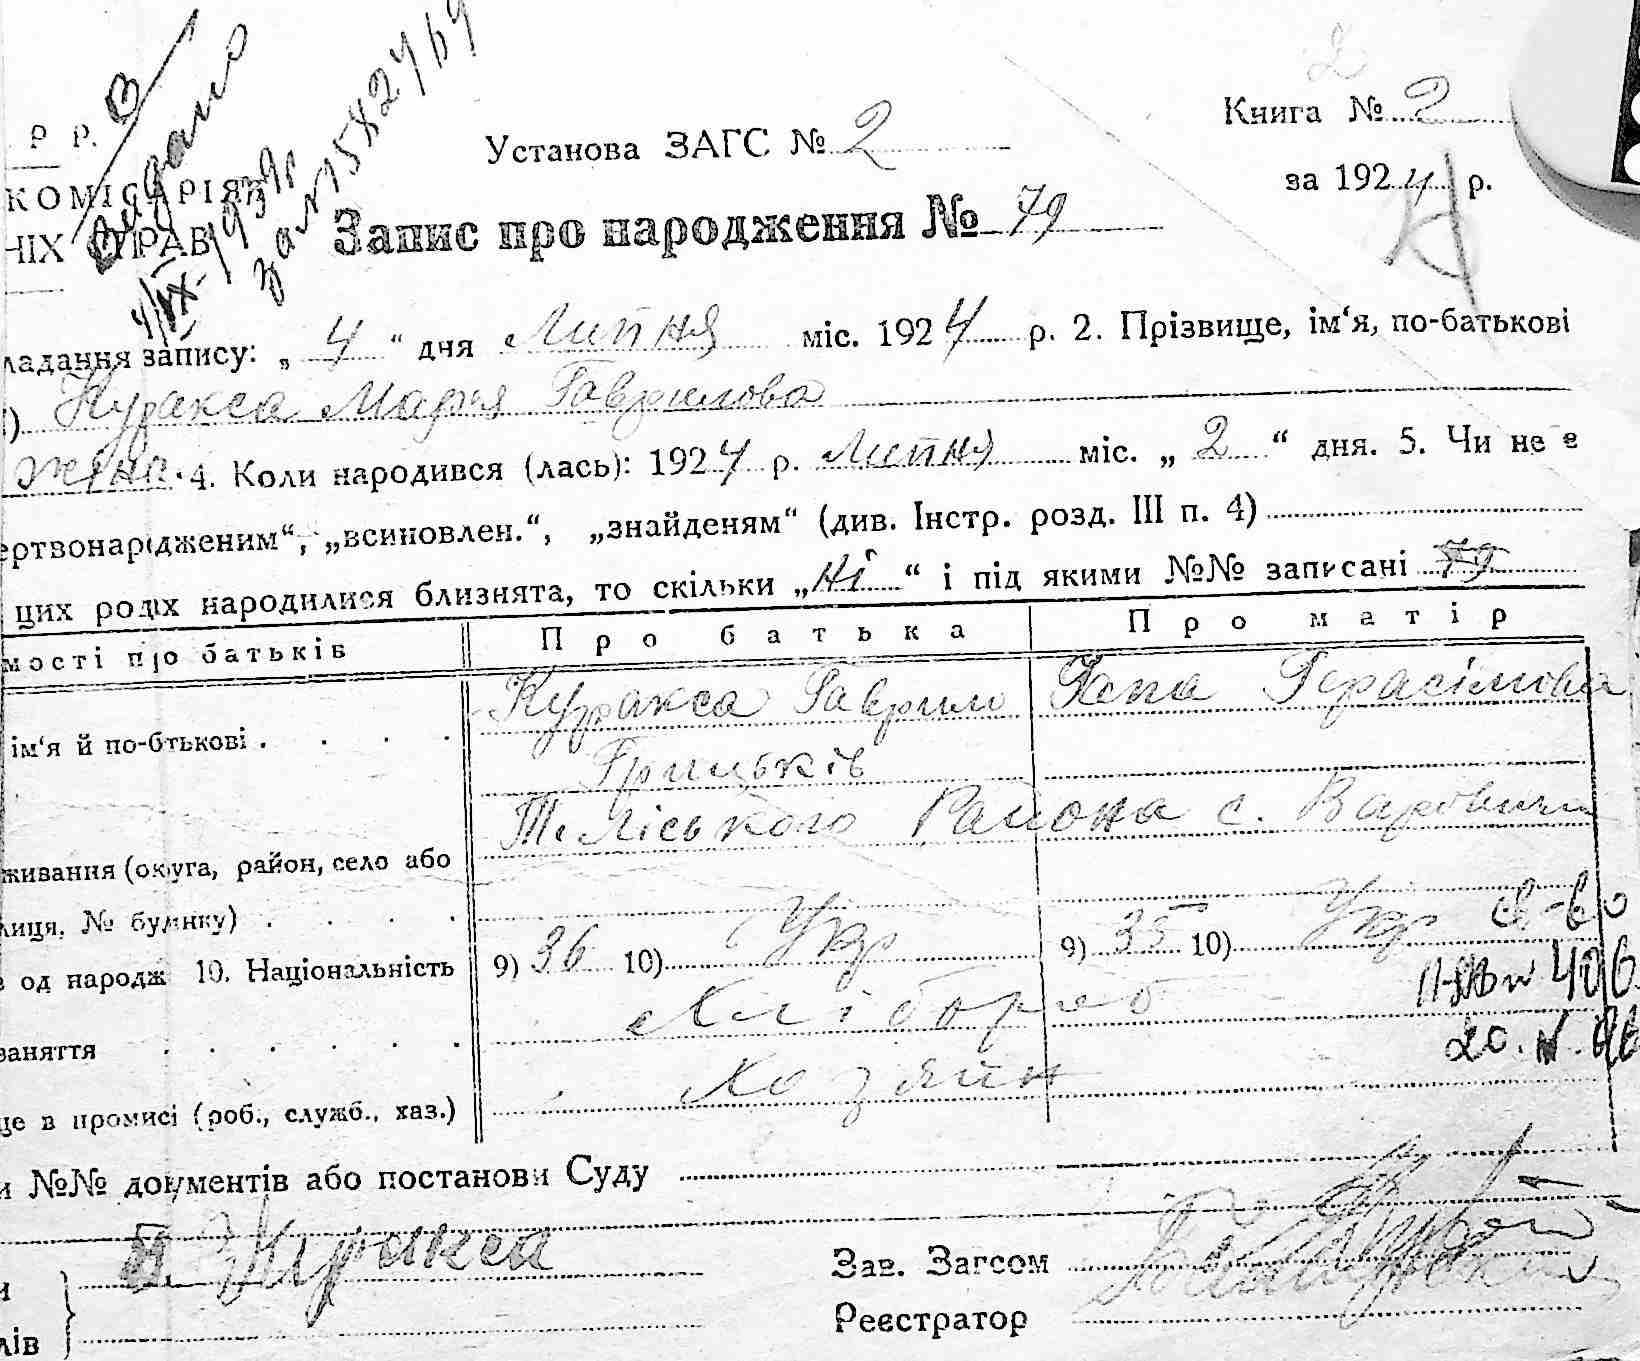 Р Р.
Видано
1939р
Книга № 2
Установа ЗАГС № 2
КОМІСАРІЯТ
за 1924 р.
НІХ СПРАВ
Запис про народження № 79
ладання запису: „ 4 “ дня Липня міс. 1924 р. 2. Прізвище, ім‘я, по-батькові
) Куракса Марʼя Гаврилова
жіно. 4. Коли народився (лась): 1924 р. Липня міс. „ 2 “ дня. 5. Чи не є
ертвонародженим“, „всиновлен.“, „знайденям“ (див. Інстр. розд. III п. 4)
цих родіх народилися близнята, то скільки „Ні“ і під якими №№ записані 79
мості про батьків Про батька Про матір
Куракса Гаврило Гапа Герасімова
ім‘я й по-бтькові .
Грицьків
Району с. Варовичі
живання (округа, район, село або
лиця, № будинку)
од народж 10. Національність 9) 36 10) Укр 9) 35 10) Укр
Хлібороб
заняття
20.
Хозяїн
це в промисі (роб., служб., хаз.)
и №№ документів або постанови Суду
Куракса
Зав. Загсом
Реєстратор
лів